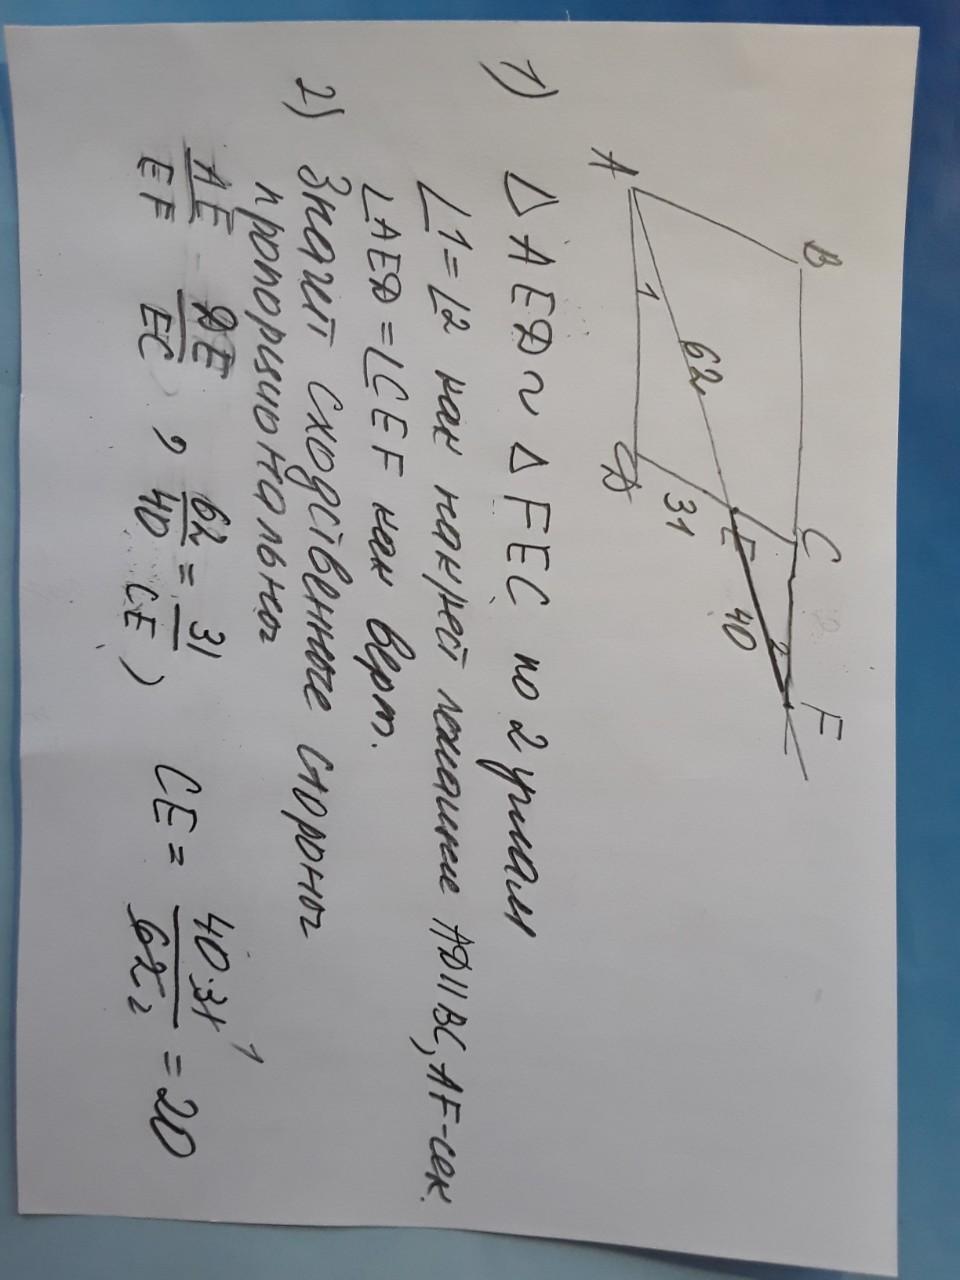 B
C
F
A
D
E
1
62
31
40
2
1) △AED ~ △FEC по 2 углам
∠1=∠2 как накрест лежащие AD||BC, AF-сек.
∠AED=∠CEF как верт.
2) Значит сходственные стороны
пропорциональны
AE/EF = DE/EC, 62/40 = 31/CE, CE = 40·31/62 = 20
1
2